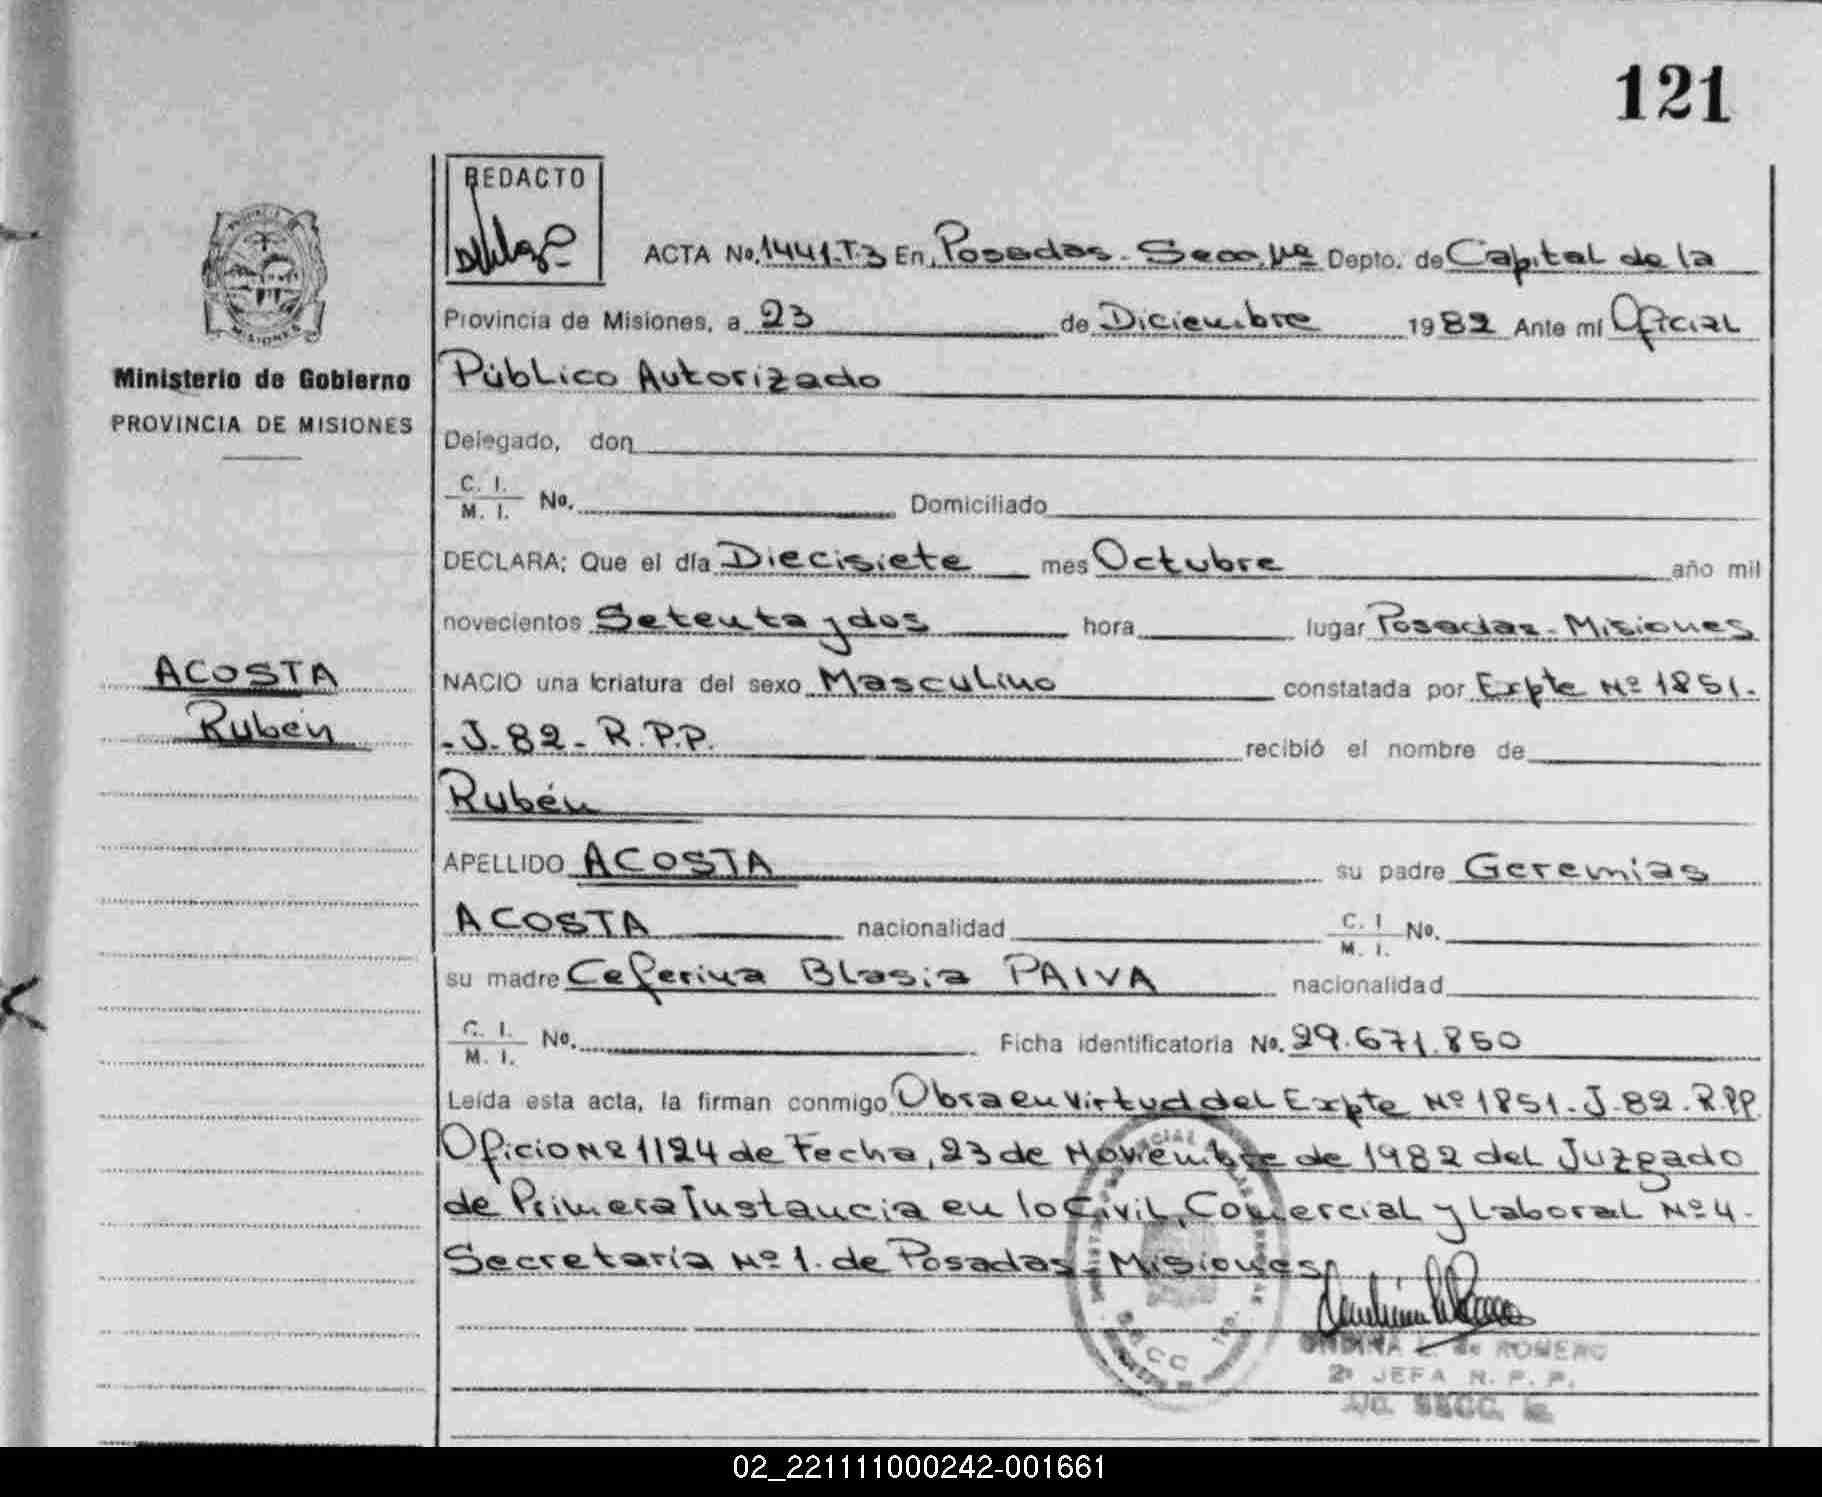 121
REDACTO
ACTA No. 1441-T.3 En, Posadas - Secc. 1ra Depto. de Capital de la
Provincia de Misiones, a 23 de Diciembre 1982 Ante mí Oficial
Ministerio de Gobierno
Público Autorizado
PROVINCIA DE MISIONES
Delegado, don
C. I.
M. I. No. Domiciliado
DECLARA: Que el día Diecisiete mes Octubre año mil
novecientos Setenta y dos hora lugar Posadas - Misiones
ACOSTA
NACIO una criatura del sexo Masculino constatada por Expte Nº 1851.
Rubén
-J-82- R.P.P. recibió el nombre de
Rubén
APELLIDO ACOSTA su padre Geremias
ACOSTA nacionalidad C. I. M. I. No.
su madre Ceferina Blasia PAIVA nacionalidad
C. I.
M. I. No. Ficha identificatoria No. 29.671.850
Leída esta acta, la firman conmigo Obra en virtud del Expte Nº 1851-J-82-R.PP
Oficio Nº 1124 de Fecha, 23 de Noviembre de 1982 del Juzgado
de Primera Instancia en lo Civil, Comercial y Laboral Nº 4.
Secretaría Nº 1. de Posadas - Misiones
ONDINA L. de ROMERO
2ª JEFA R. P. P.
SECC. 1a.
02_221111000242-001661